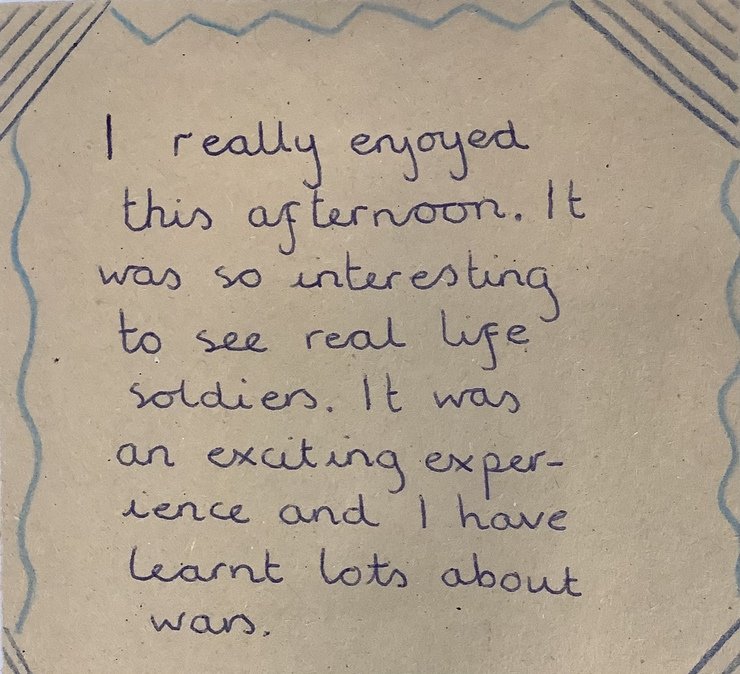 I really enjoyed
this afternoon. It
was so interesting
to see real life
soldiers. It was
an exciting exper-
ience and I have
learnt lots about
wars.